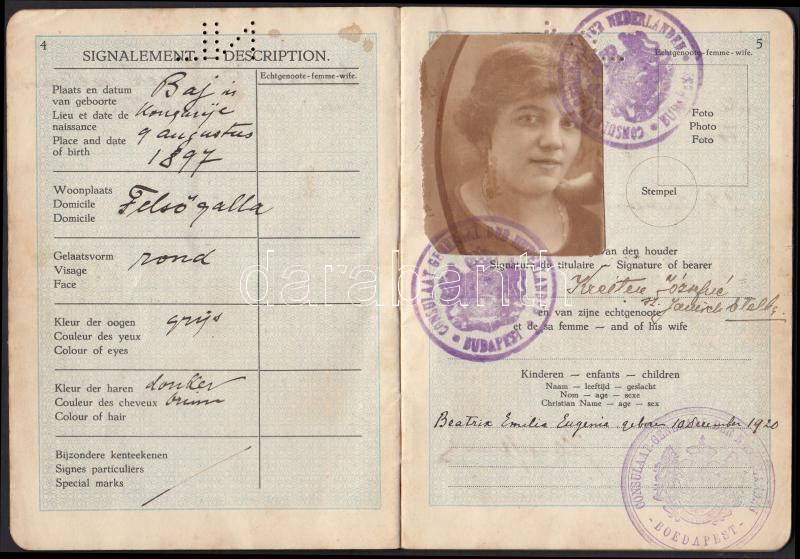 4
SIGNALEMENT DESCRIPTION.
Echtgenoote-femme-wife.
Plaats en datum
van geboorte
Lieu et date de
naissance
Place and date
of birth
Baj in
Hongarije
9 augustus
1897
Woonplaats
Domicile
Domicile
Felsőgalla
Gelaatsvorm
Visage
Face
rond
Kleur der oogen
Couleur des yeux
Colour of eyes
grijs
Kleur der haren
Couleur des cheveux
Colour of hair
donker
bruin
Bijzondere kenteekenen
Signes particuliers
Special marks
5
Echtgenoote-femme-wife.
Foto
Photo
Foto
Stempel
van den houder
Signature du titulaire – Signature of bearer
Józsefné
sz.
en van zijne echtgenoote
et de sa femme — and of his wife
Kinderen — enfants — children
Naam — leeftijd — geslacht
Nom — age — sexe
Christian Name — age — sex
Beatrix Emilia Eugenia geboren 10 December 1920
BUDAPEST
CONSULAAT GENERAAL DER NEDERLANDEN
BUDAPEST
CONSULAAT-GENERAAL DER NEDERLANDEN
- BOEDAPEST -
darabanth